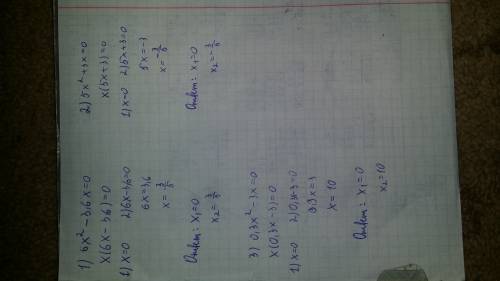 1) 6x² - 3,6x=0
x(6x - 3,6)=0
1) x=0 2) 6x-3,6=0
6x=3,6
x= 3/5
Ответ: x₁=0
x₂= 3/5
2) 5x²+3x=0
x(5x+3)=0
1) x=0 2) 5x+3=0
5x=-3
x=-3/5
Ответ: x₁=0
x₂=-3/5
3) 0,3x²-3x=0
x(0,3x-3)=0
1) x=0 2) 0,3x-3=0
0,3x=3
x= 10
Ответ: x₁=0
x₂=10